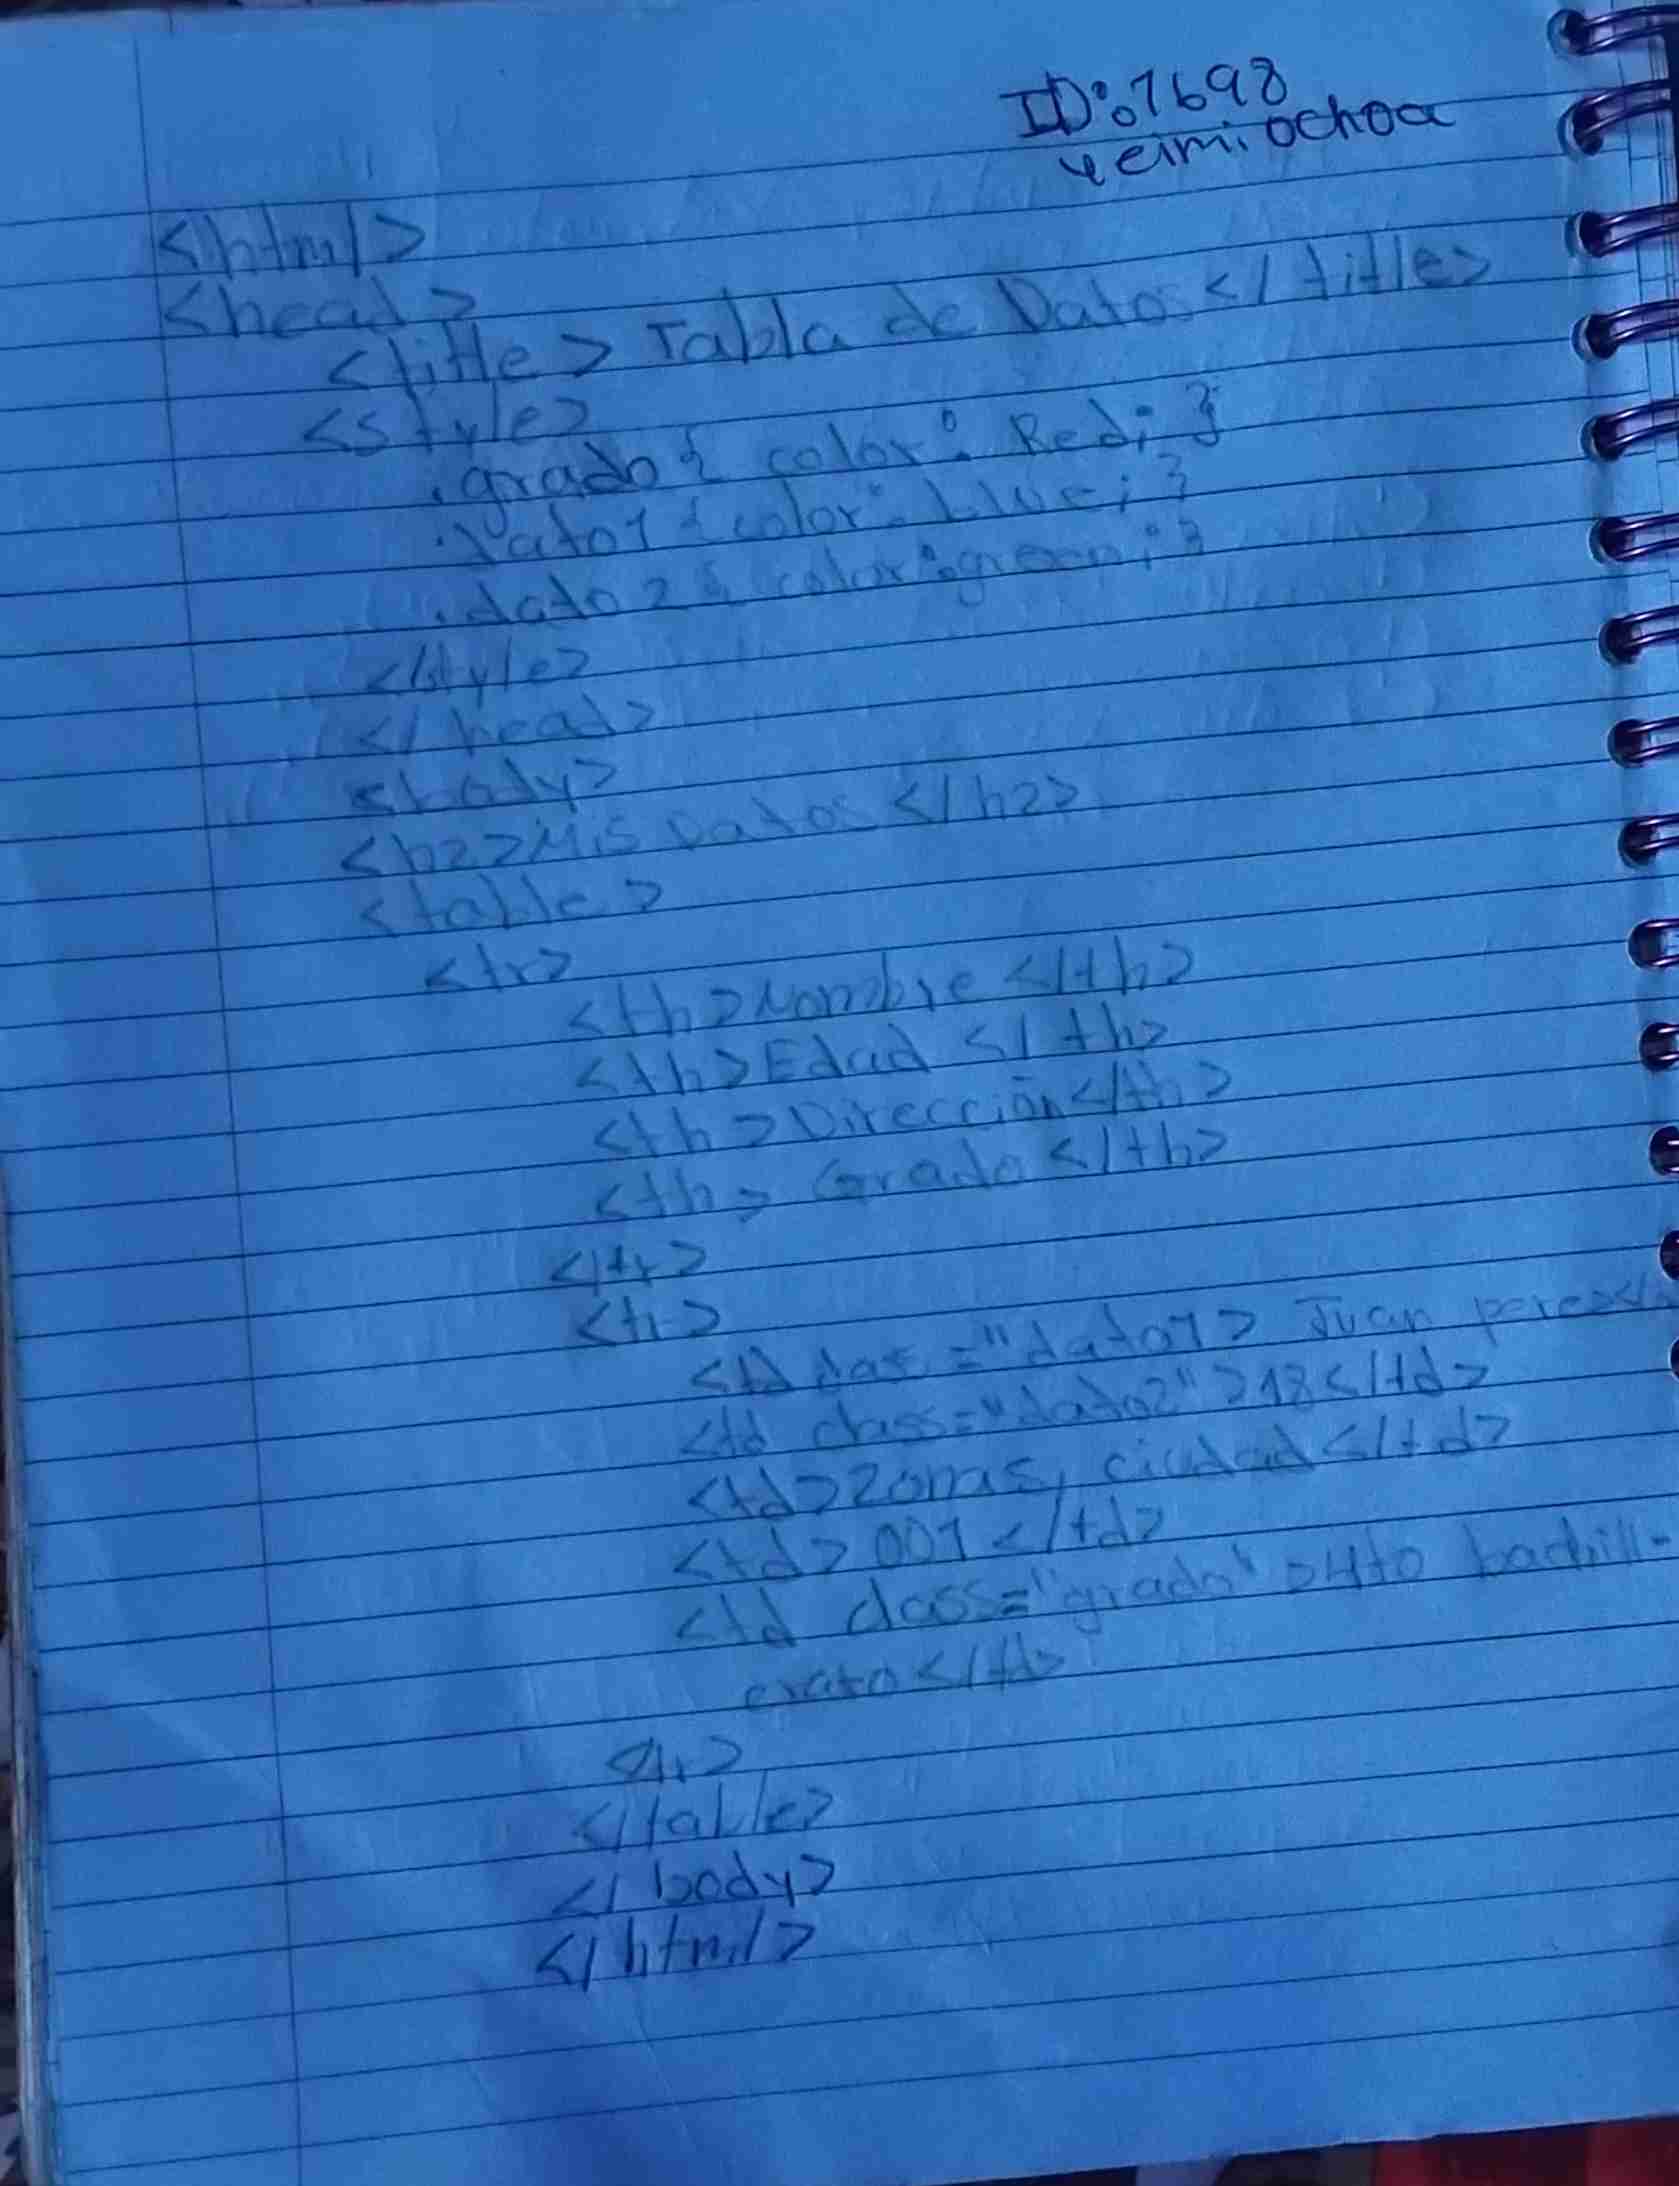 ID:7698
yeimi ochoa
<html>
<head>
<title> Tabla de Datos </title>
<style>
.grado { color: Red; }
.dato1 { color: blue; }
.dato2 { color: green; }
</style>
</head>
<body>
<h2>Mis Datos </h2>
<table>
<tr>
<th>Nombre </th>
<th>Edad </th>
<th>Dirección</th>
<th> Grado </th>
</tr>
<tr>
<td class ="dato1> Juan perez</
<td class="dato2" >18</td>
<td>zonas, ciudad </td>
<td>001</td>
<td class="grado" >4to bachill-
erato </td>
</tr>
</table>
</body>
</html>